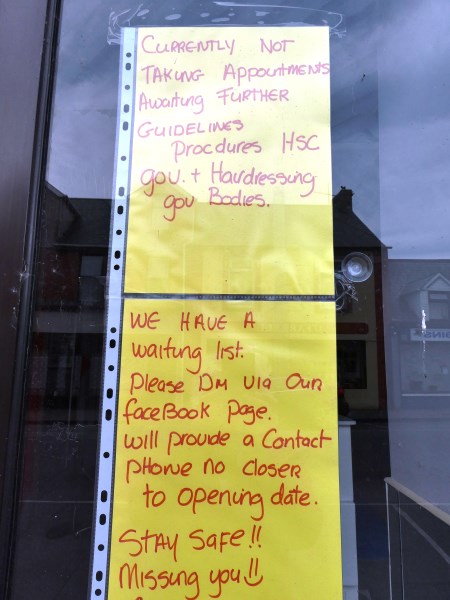 CURRENTLY NOT
TAKING APPOINTMENTS
AWAITING FURTHER
GUIDELINES
Procdures HSC
gov. + Hairdressing
gov Bodies.
WE HAVE A
waiting list.
Please DM via Our
FaceBook Page.
will provide a Contact
phone no closer
to opening date.
STAY SAFE!!
Missing you!!